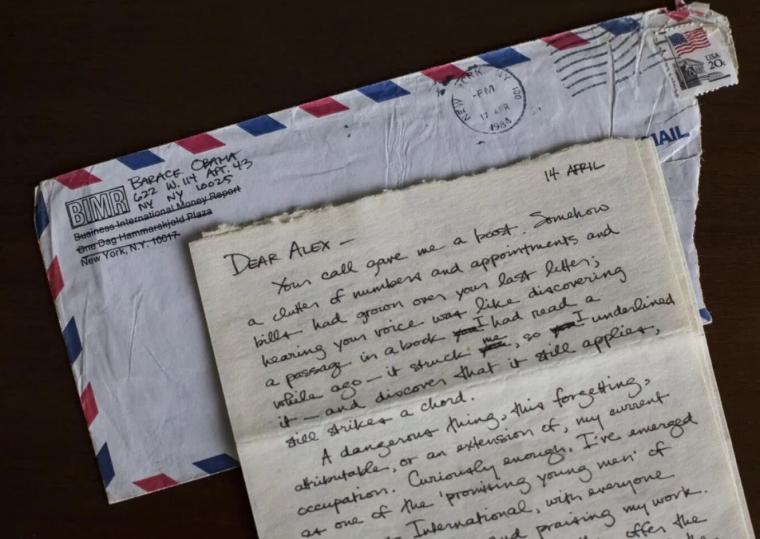 NEW YORK, NY 100
-PM
17 APR
1984
USA
20c
MAIL
BARACK OBAMA
622 W. 114 APT. 43
NY NY 10025
BIMR
Business International Money Report
One Dag Hammarskjold Plaza
New York, N.Y. 10017
14 APRIL
DEAR ALEX —
Your call gave me a boost. Somehow
a clutter of numbers and appointments and
bills had grown over your last letter;
hearing your voice was like discovering
a passage in a book I had read a
while ago — it struck me, so I underlined
it — and discover that it still applies,
still strikes a chord.
A dangerous thing, this forgetting,
attributable, or an extension of, my current
occupation. Curiously enough, I've emerged
as one of the 'promising young men' of
International, with everyone
and praising my work.
offer the